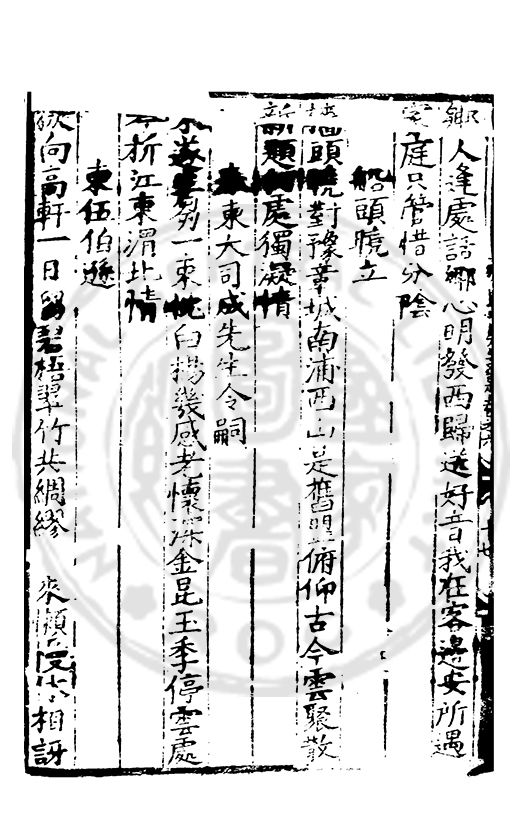 鄉人逢處話鄉心明發西歸送好音我在客邊安所遇
家庭只管惜分陰
船頭曉立
船頭曉對豫章城南浦西山是舊盟俯仰古今雲聚散
新題何處獨凝情
柬大司成先生令嗣
列一束忱臼揚幾感老懷深金昆玉季停雲處
不折江東渭北情
柬伍伯遜
欲向高軒一日留碧梧翠竹共綢繆來顧相訝